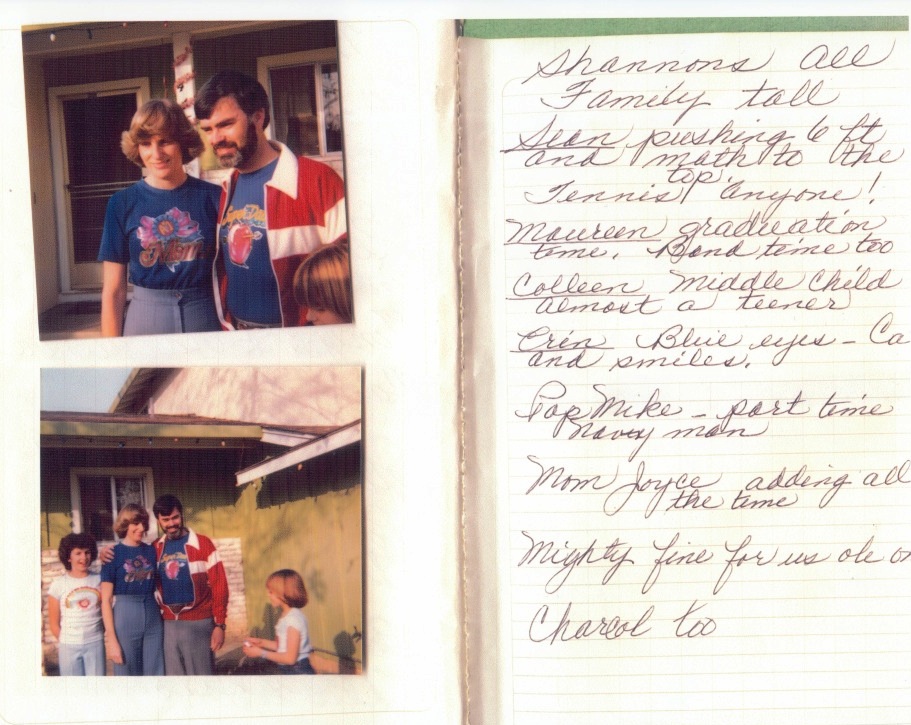 Mom
Shannons All
Family tall
Sean pushing 6 ft
and math to the
top.
Tennis Anyone!
Maureen graduation
time. Band time too
Colleen Middle Child
almost a teener
Erin Blue eyes - Ca
and smiles.
Pop Mike - part time
Navy man
Mom Joyce adding all
the time
Mighty fine for us ole on
Charcol too